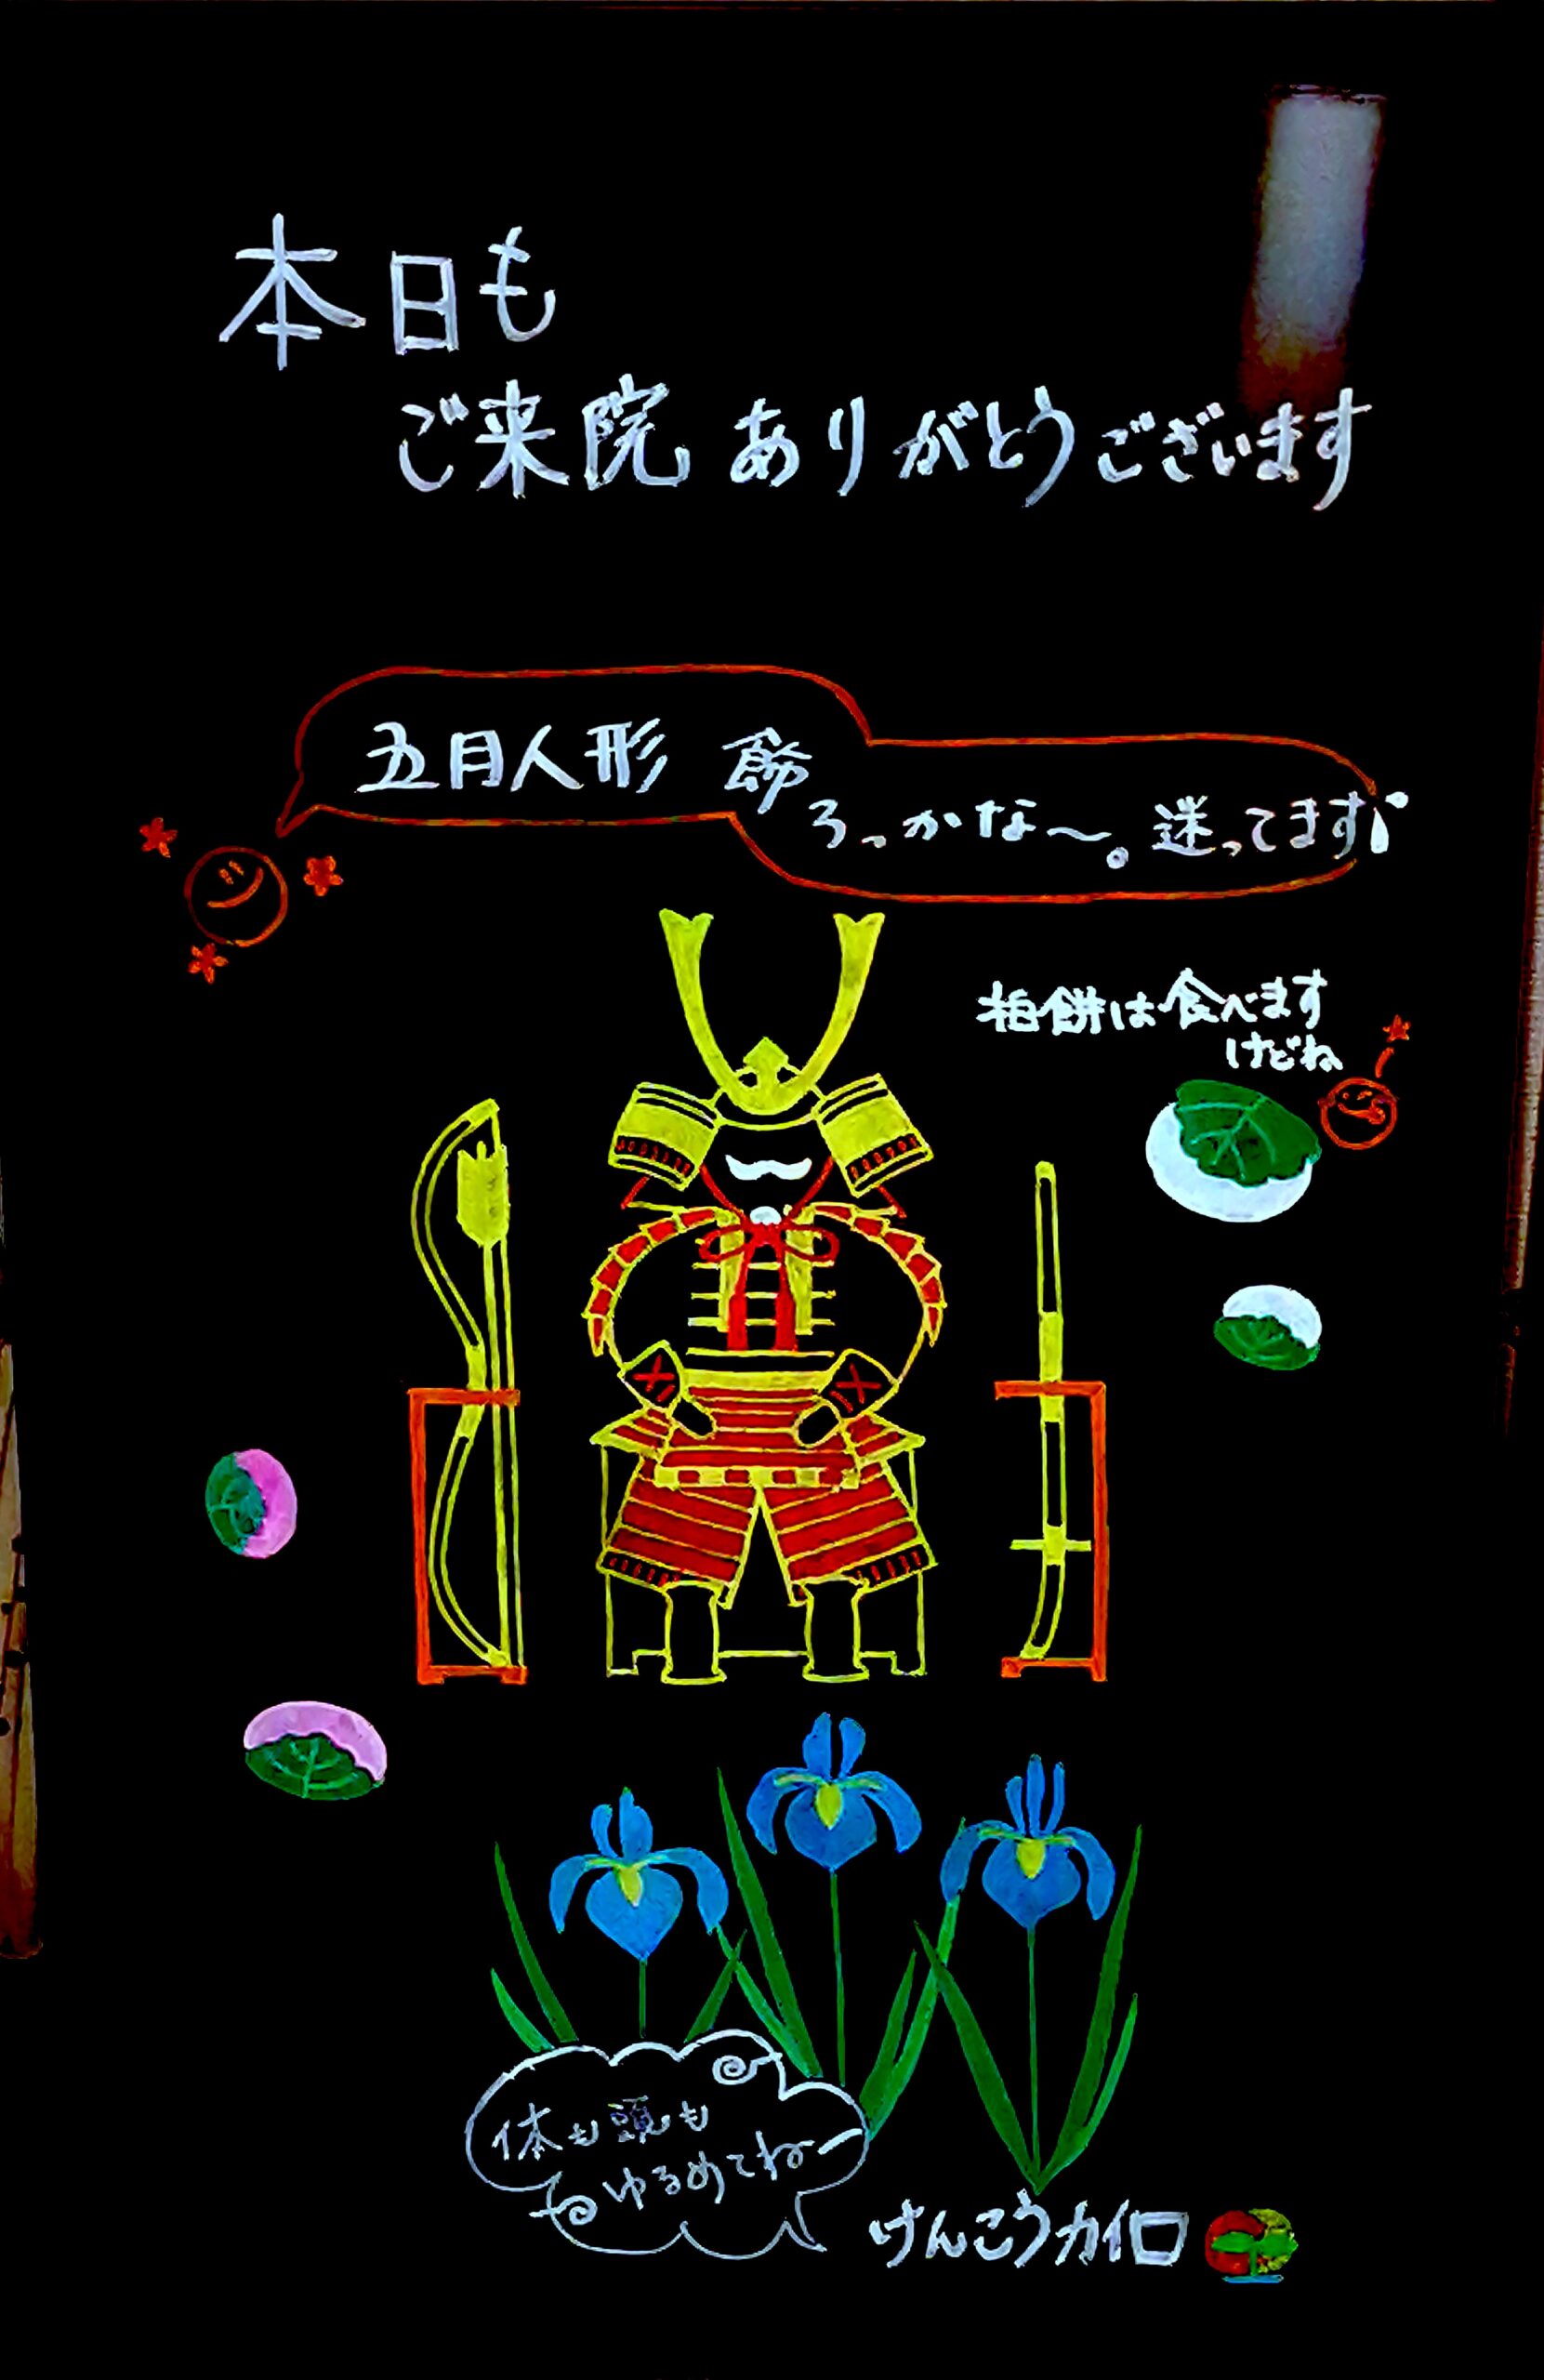 本日も
ご来院 ありがとうございます
五月人形 飾
ろっかな〜。迷ってます
柏餅は食べます
けどね
体も頭も
ゆるめてねー
けんこうカイロ